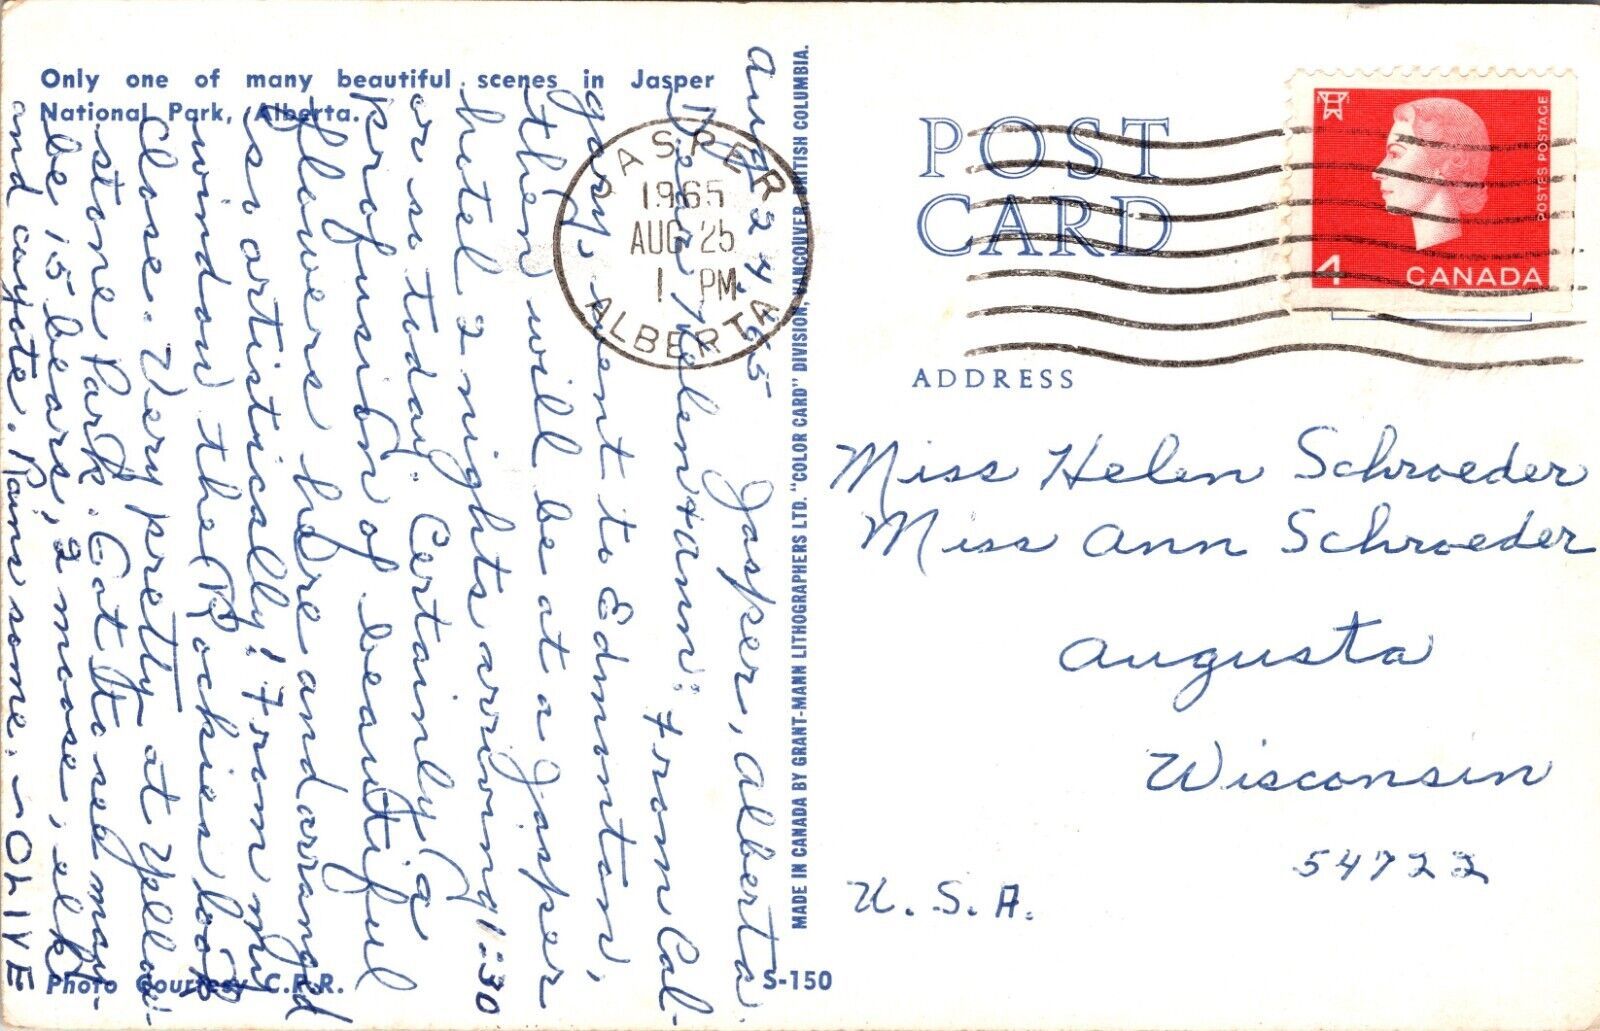 Only one of many beautiful scenes in Jasper
National Park, Alberta.
Aug 24, '65 Jasper, Alberta
Dear Helen + Ann: From Cal-
gary, went to Edmonton,
then will be at a Jasper
hotel 2 nights arriving 1:30
or so today. Certainly a
profusion of beautiful
flowers here and arranged
so artistically! From my
window the Rockies look
close. Very pretty at Yellow-
stone Park. Got to see may-
be 15 bears, 2 moose, elk
and cayote. Rains some. ~OLIVE
Photo Courtesy C.P.R.
S-150
MADE IN CANADA BY GRANT-MANN LITHOGRAPHERS LTD. "COLOR CARD" DIVISION, VANCOUVER, BRITISH COLUMBIA.
JASPER
1965
AUG 25
1 PM
ALBERTA
POST
CARD
POSTES POSTAGE
4 CANADA
ADDRESS
Miss Helen Schroeder
Miss Ann Schroeder
Augusta
Wisconsin
54722
U.S.A.